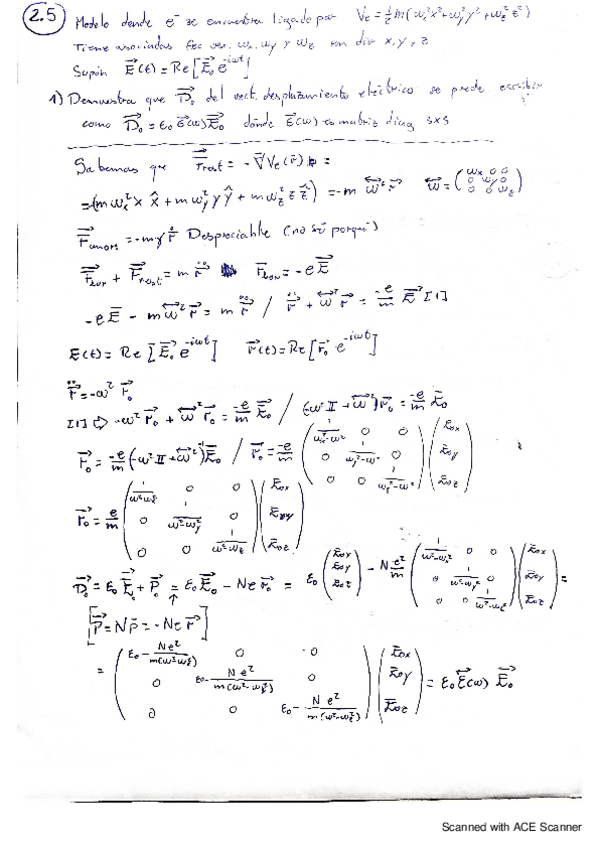 2.5 Modelo donde e⁻ se encuentra ligado por Ve = ½m(ωx²x²+ωy²y²+ωz²z²)
Tiene asociadas frec ωx, ωy y ωz en dir x, y, z
Supón E⃗(t) = Re[E⃗₀ e^{-iωt}]
1) Demuestra que D⃗₀ del vect. desplazamiento eléctrico se puede escribir
como D⃗₀ = ε₀ ε⃡(ω)E⃗₀ donde ε⃡(ω) es matriz diag 3x3
Sabemos que F⃗rest = -∇⃗Ve(r⃗) =
= (mωx²x x̂ + mωy²y ŷ + mωz²z ẑ) = -m ω⃡² r⃗ ω⃡ = (ωx 0 0 / 0 ωy 0 / 0 0 ωz)
F⃗amort = -mγ ṙ⃗ Despreciable (no sé porqué)
F⃗lor + F⃗rest = m r̈⃗ F⃗lor = -e E⃗
-e E⃗ - m ω⃡² r⃗ = m r̈⃗ / r̈⃗ + ω⃡² r⃗ = -e/m E⃗ [1]
E(t) = Re[E⃗₀ e^{-iωt}] r⃗(t) = Re[r⃗₀ e^{-iωt}]
r̈⃗ = -ω² r⃗₀
[1] ⇒ -ω² r⃗₀ + ω⃡² r⃗₀ = -e/m E⃗₀ / (-ω² II + ω⃡²) r⃗₀ = -e/m E⃗₀
r⃗₀ = -e/m (-ω² II + ω⃡²)⁻¹ E⃗₀ / r⃗₀ = -e/m (1/(ωx²-ω²) 0 0 / 0 1/(ωy²-ω²) 0 / 0 0 1/(ωz²-ω²)) (E₀x / E₀y / E₀z)
r⃗₀ = e/m (1/(ω²-ωx²) 0 0 / 0 1/(ω²-ωy²) 0 / 0 0 1/(ω²-ωz²)) (E₀x / E₀y / E₀z)
D⃗₀ = ε₀ E⃗₀ + P⃗₀ = ε₀ E⃗₀ - Ne r⃗₀ = ε₀ (E₀x / E₀y / E₀z) - N e²/m (1/(ω²-ωx²) 0 0 / 0 1/(ω²-ωy²) 0 / 0 0 1/(ω²-ωz²)) (E₀x / E₀y / E₀z) =
[P⃗ = Np⃗ = -Ne r⃗]
= (ε₀ - Ne²/m(ω²-ωx²) 0 0 / 0 ε₀ - Ne²/m(ω²-ωy²) 0 / 0 0 ε₀ - Ne²/m(ω²-ωz²)) (E₀x / E₀y / E₀z) = ε₀ ε⃡(ω) E⃗₀
Scanned with ACE Scanner